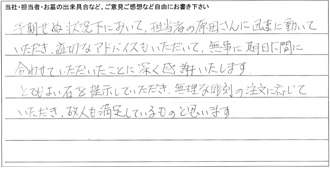 当社・担当者・お墓の出来具合など、ご意見ご感想など自由にお書き下さい
予期せぬ状況下において、担当者の原田さんに迅速に動いて
いただき、適切なアドバイスもいただいて、無事に期日に間に
合わせていただいたことに深く感謝いたします
とてもよい石を提示していただき、無理な彫刻の注文に応じて
いただき、故人も満足しているものと思います